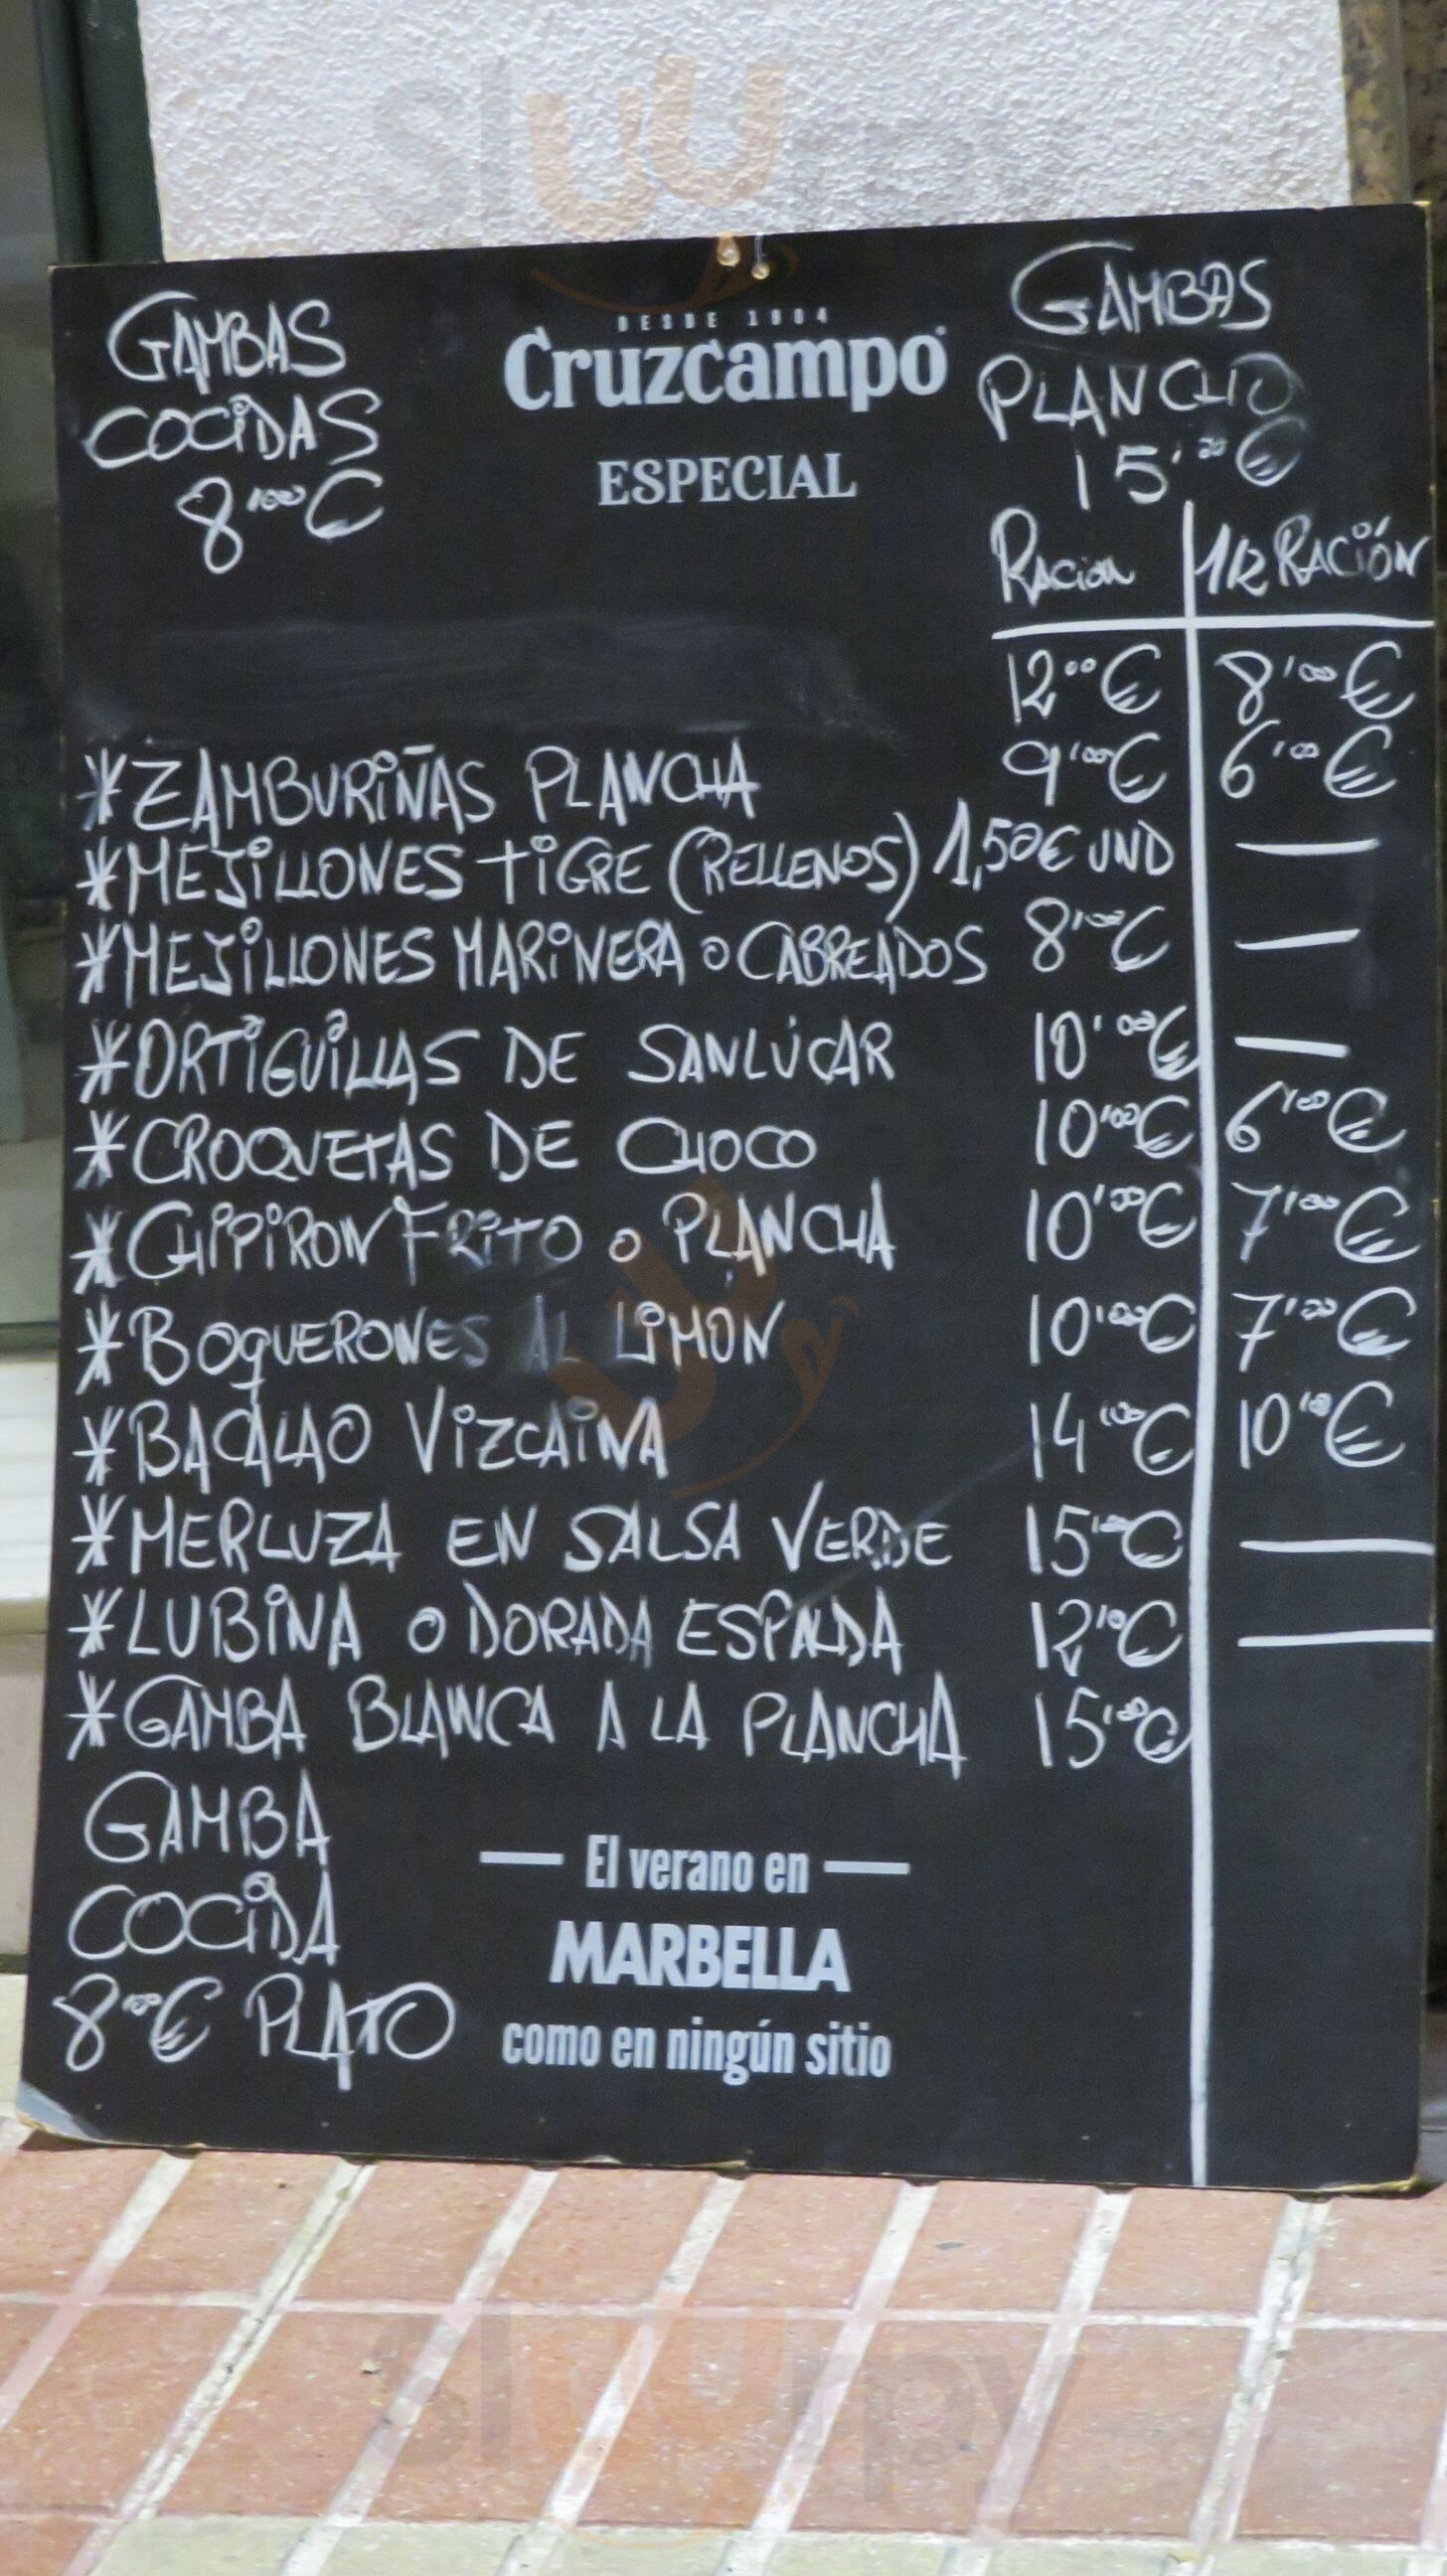 sluurpy
DESDE 1904
Cruzcampo
ESPECIAL
GAMBAS
COCIDAS
8'00€
GAMBAS
PLANCHA
15'00€
RACION 1/2 RACIÓN
12'00€ 8'00€
*ZAMBURIÑAS PLANCHA 9'00€ 6'00€
*MEJILLONES TIGRE (RELLENOS) 1,50€ UND —
*MEJILLONES MARINERA O CABREADOS 8'00€ —
*ORTIGUILLAS DE SANLÚCAR 10'00€ —
*CROQUETAS DE CHOCO 10'00€ 6'00€
*CHIPIRON FRITO O PLANCHA 10'00€ 7'00€
*BOQUERONES AL LIMON 10'00€ 7'00€
*BACALAO VIZCAINA 14'00€ 10'00€
*MERLUZA EN SALSA VERDE 15'00€ —
*LUBINA O DORADA ESPALDA 12'00€ —
*GAMBA BLANCA A LA PLANCHA 15'00€
GAMBA
COCIDA
8'00€ PLATO
— El verano en —
MARBELLA
como en ningún sitio
sluurpy